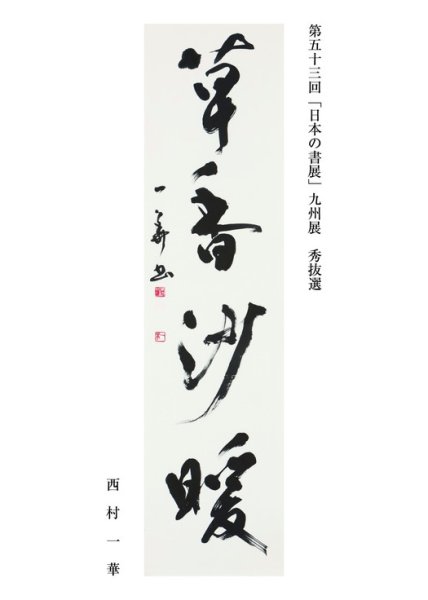 第五十三回「日本の書展」九州展　秀抜選
草香沙暖
一華書
西村一華